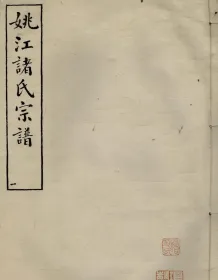 姚江諸氏宗譜
一